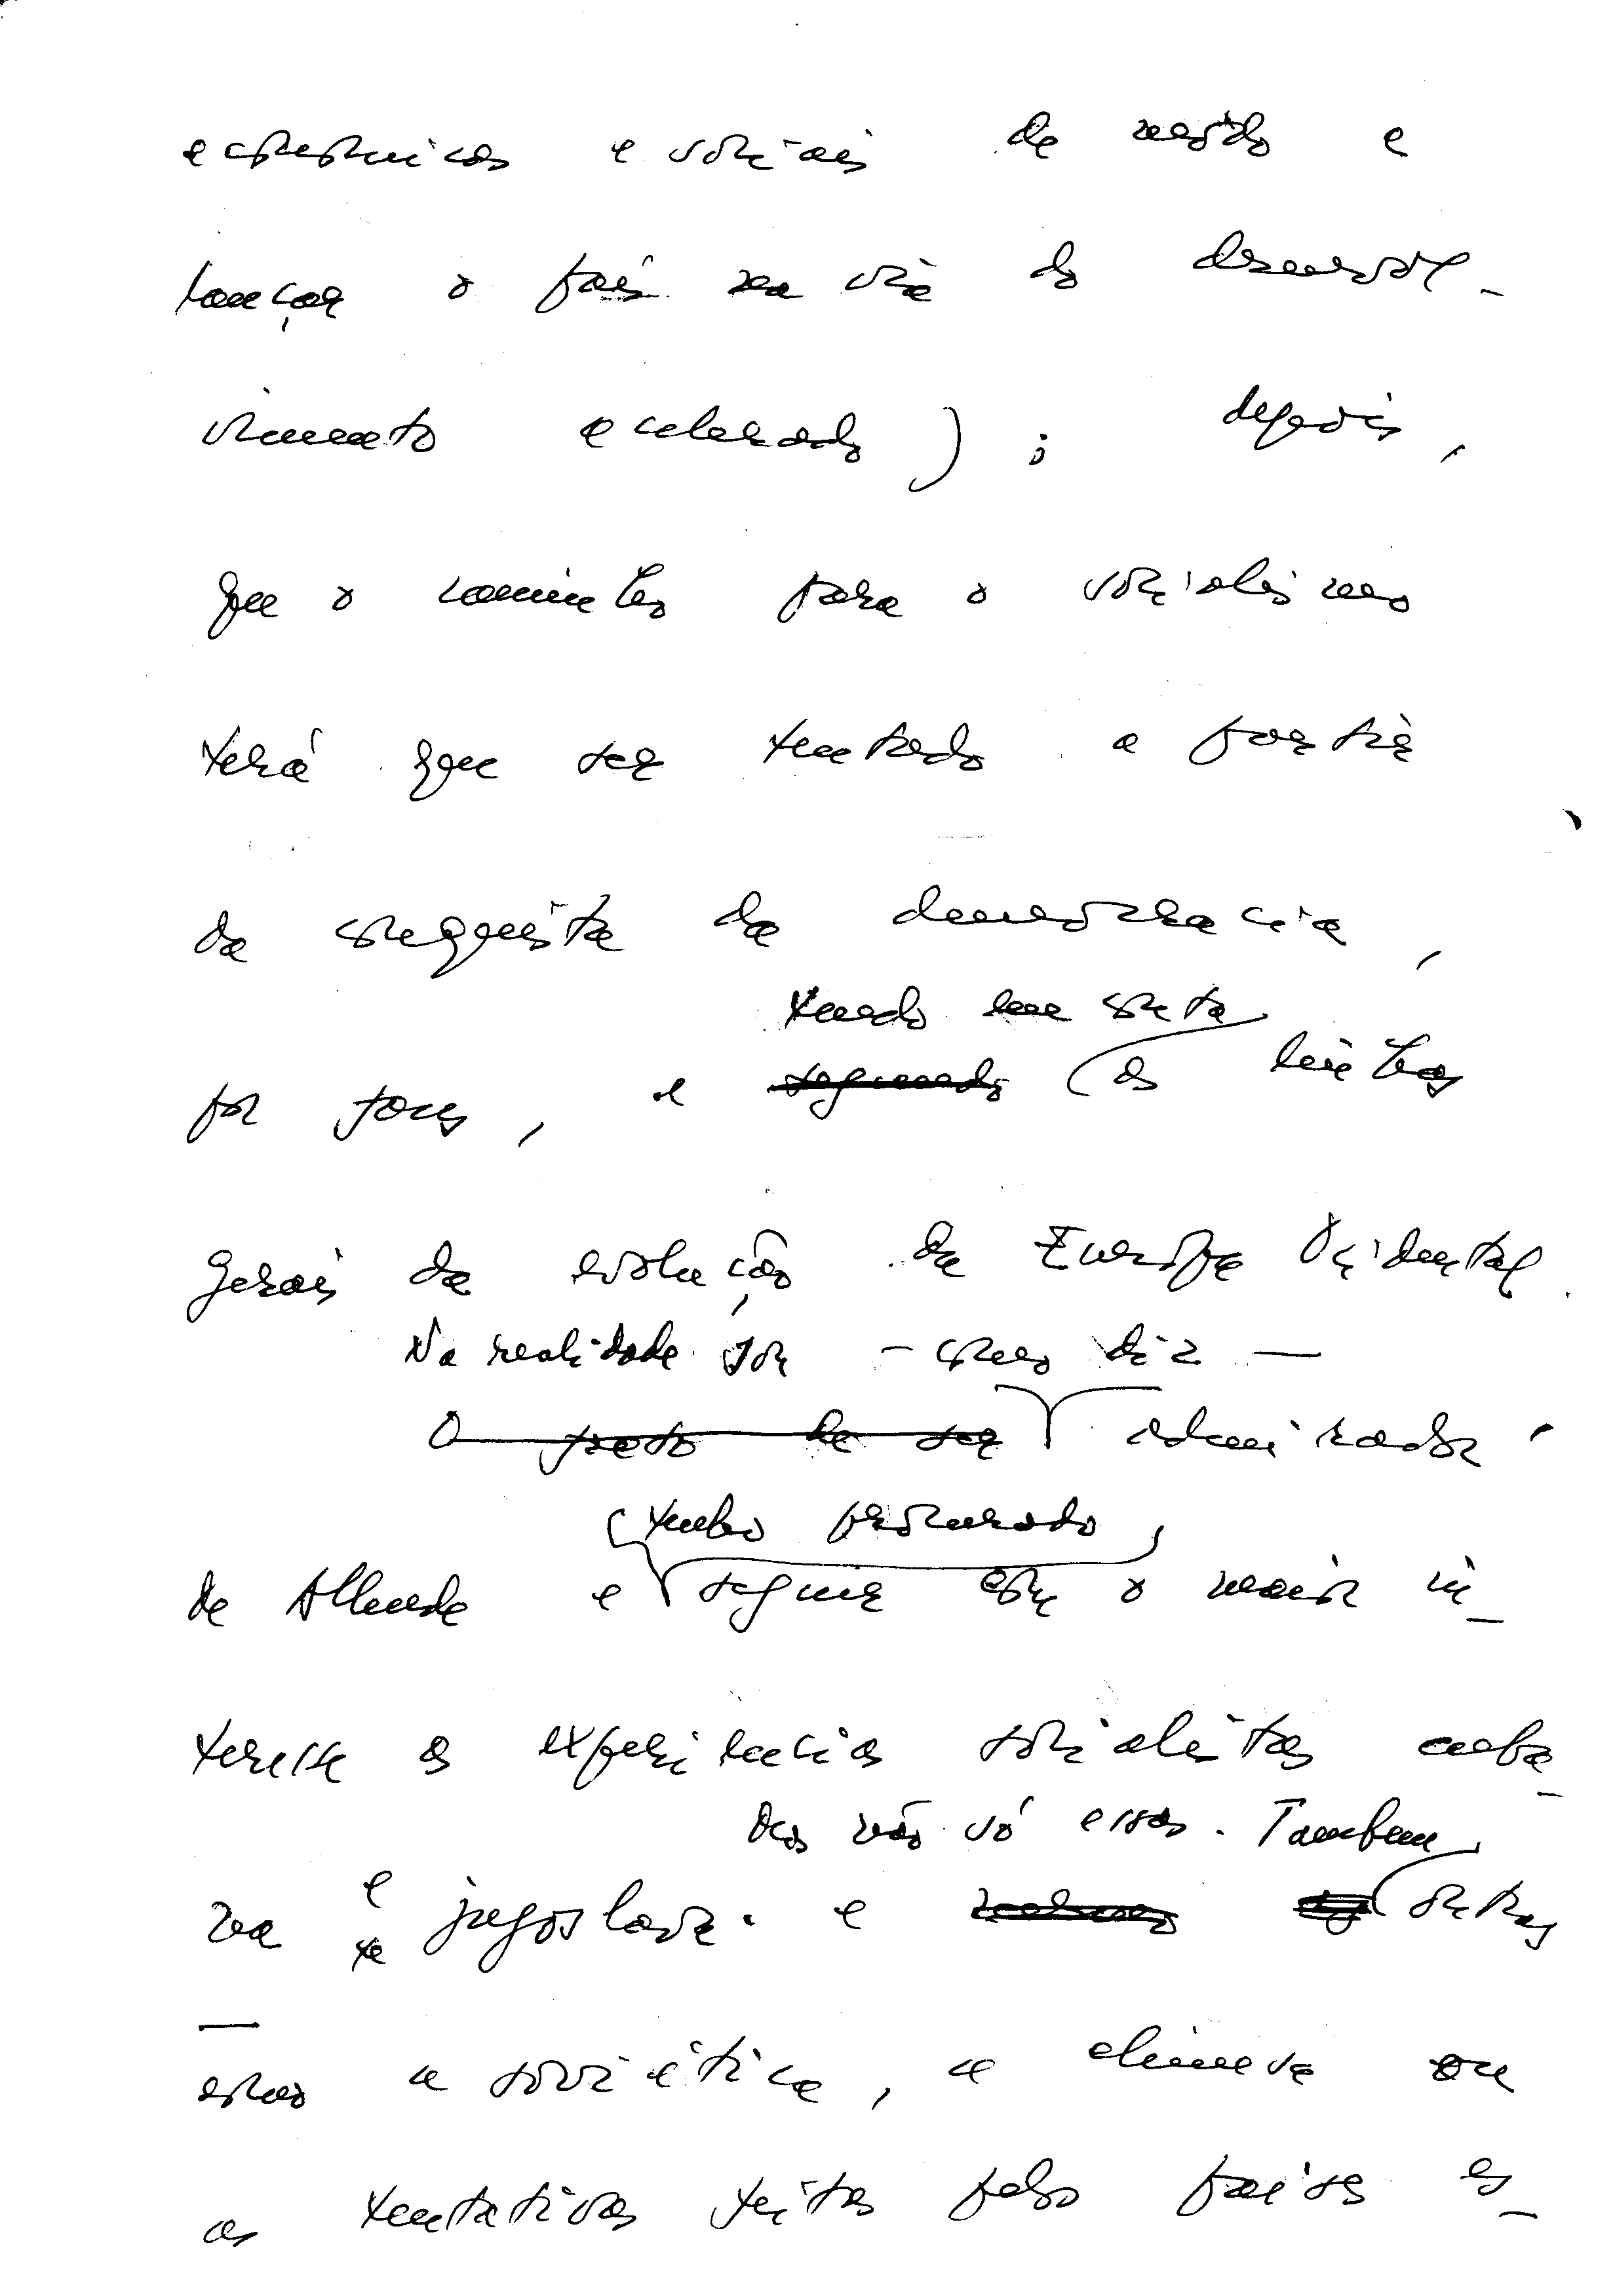 económicos e sociais de modo a
lançar o país na via do desenvol-
vimento acelerado); depois,
que o caminho para o socialismo
terá que ser tentado a partir
da conquista da democracia,
tendo em conta
por fases, e seguindo as linhas
gerais da evolução da Europa Ocidental.
Na realidade sou — como diz —
O facto de ser admirador
tenho procurado
de Allende e seguir com o maior in-
teresse as experiências socialistas cuba-
Mas não só essas. Também
na e jugoslava. e outras
como a soviética, a chinesa ou
as tentativas feitas pelos países es-